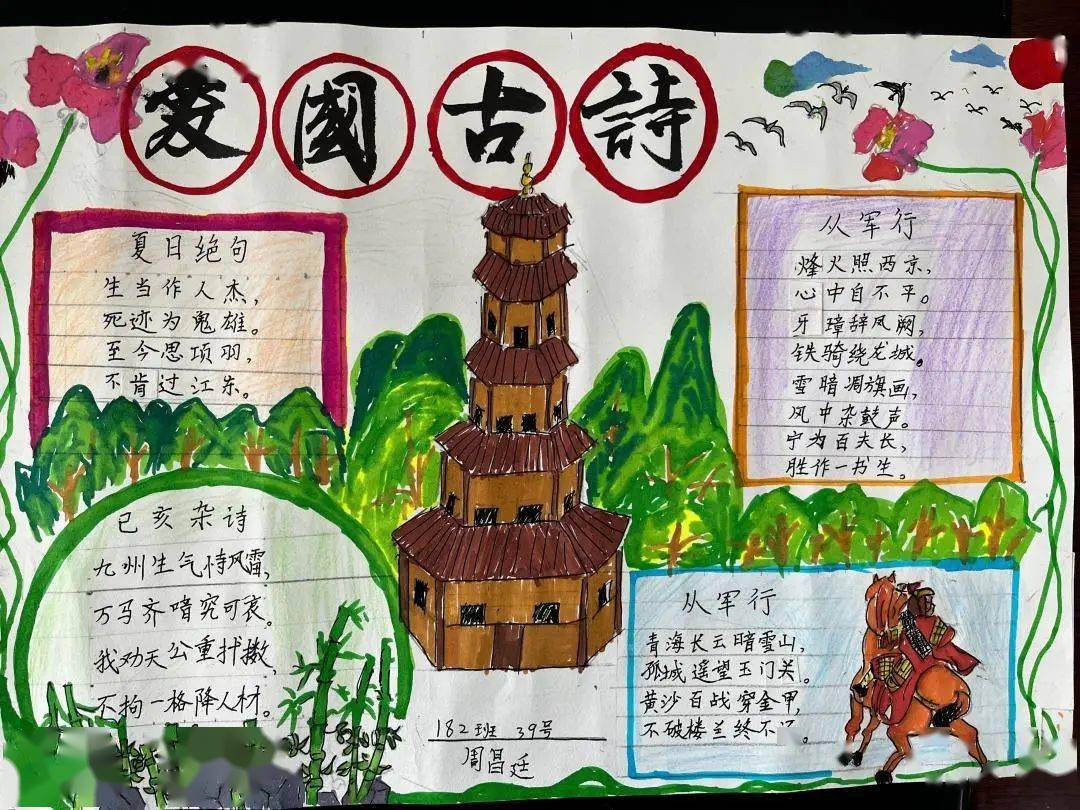 爱國古詩
夏日绝句
生当作人杰,
死迹为鬼雄。
至今思项羽,
不肯过江东。
从军行
烽火照西京,
心中自不平。
牙璋辞凤阙,
铁骑绕龙城。
雪暗凋旗画,
风中杂鼓声。
宁为百夫长,
胜作一书生。
己亥杂诗
九州生气恃风雷,
万马齐喑究可哀。
我劝天公重抖擞,
不拘一格降人材。
从军行
青海长云暗雪山,
孤城遥望玉门关。
黄沙百战穿金甲,
不破楼兰终不
182班 39号
周昌廷